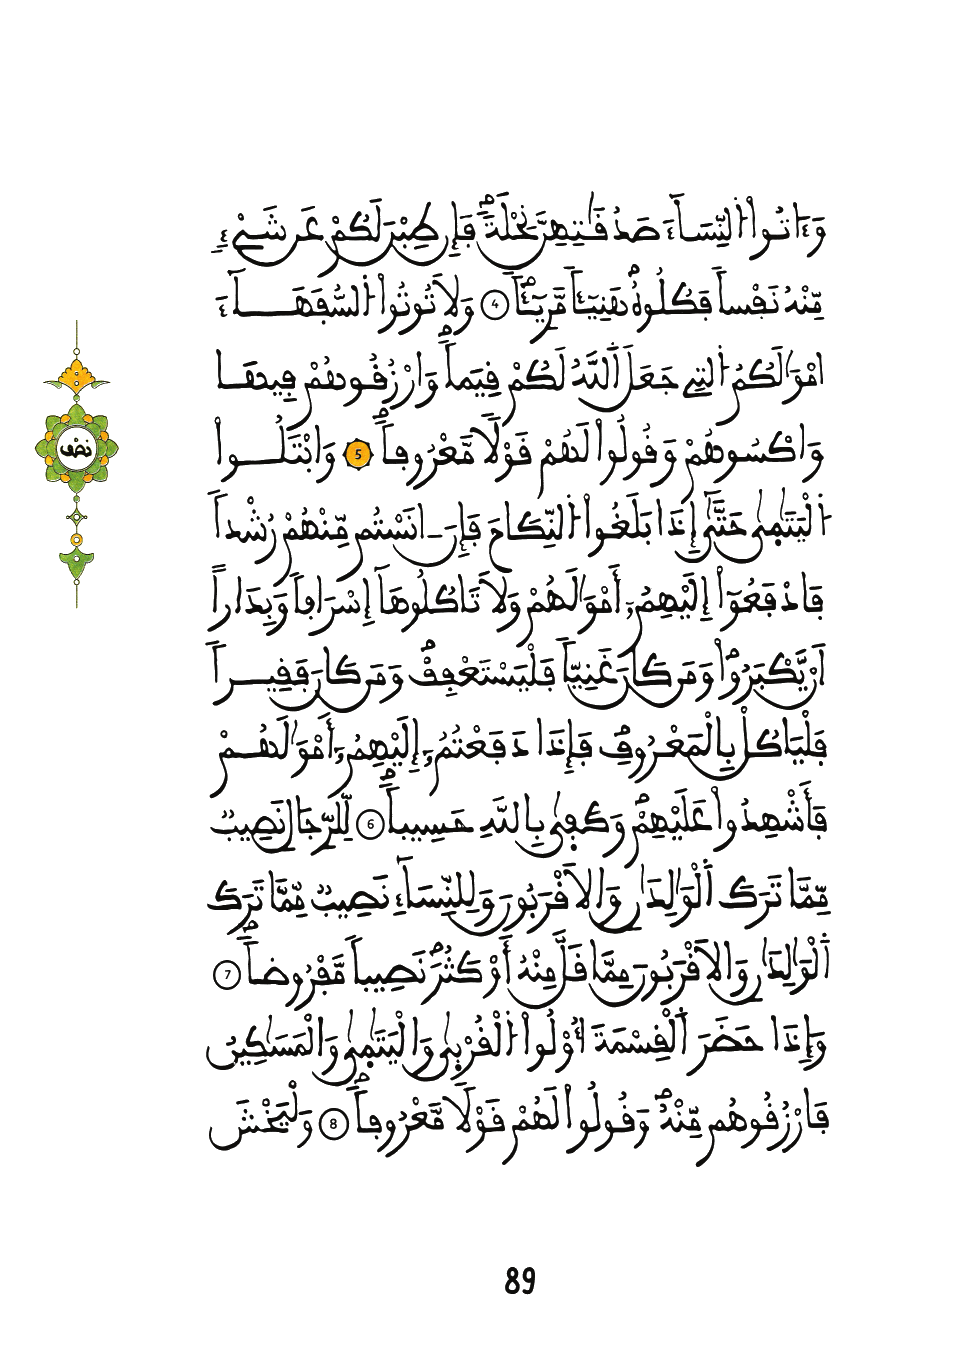 وَءَاتُوا۟ اُ۬لنِّسَآءَ صَدُقَٰتِهِنَّ نِحْلَةٗۖ فَإِن طِبْنَ لَكُمْ عَن شَےْءٖ
مِّنْهُ نَفْساٗ فَكُلُوهُ هَنِيٓـٔاٗ مَّرِيٓـٔاٗۖ 4 وَلَا تُوتُوا۟ اُ۬لسُّفَهَآءَ
امْوَٰلَكُمُ اُ۬لتِے جَعَلَ اَ۬للَّهُ لَكُمْ قِيَماٗۖ وَارْزُقُوهُمْ فِيهَا
وَاكْسُوهُمْ وَقُولُوا۟ لَهُمْ قَوْلاٗ مَّعْرُوفاٗۖ 5 وَابْتَلُوا۟
اُ۬لْيَتَٰم۪يٰ حَتَّيٰٓ إِذَا بَلَغُوا۟ اُ۬لنِّكَاحَ فَإِنَ ـ انَسْتُم مِّنْهُمْ رُشْداٗ
فَادْفَعُوٓا۟ إِلَيْهِمُۥٓ أَمْوَٰلَهُمْ وَلَا تَاكُلُوهَآ إِسْرَافاٗ وَبِدَاراً
اَنْ يَّكْبَرُوا۟ۖ وَمَن كَانَ غَنِيّاٗ فَلْيَسْتَعْفِفْۖ وَمَن كَانَ فَقِيراٗ
فَلْيَاكُلْ بِالْمَعْرُوفِۖ فَإِذَا دَفَعْتُمُۥٓ إِلَيْهِمُۥٓ أَمْوَٰلَهُمْ
فَأَشْهِدُوا۟ عَلَيْهِمْۖ وَكَف۪يٰ بِاللَّهِ حَسِيباٗۖ 6 لِّلرِّجَالِ نَصِيبٞ
مِّمَّا تَرَكَ اَ۬لْوَٰلِدَٰنِ وَالَاقْرَبُونَ وَلِلنِّسَآءِ نَصِيبٞ مِّمَّا تَرَكَ
اَ۬لْوَٰلِدَٰنِ وَالَاقْرَبُونَ مِمَّا قَلَّ مِنْهُ أَوْ كَثُرَۖ نَصِيباٗ مَّفْرُوضاٗۖ 7
وَإِذَا حَضَرَ اَ۬لْقِسْمَةَ أُوْلُوا۟ اُ۬لْقُرْب۪يٰ وَالْيَتَٰم۪يٰ وَالْمَسَٰكِينُ
فَارْزُقُوهُم مِّنْهُۖ وَقُولُوا۟ لَهُمْ قَوْلاٗ مَّعْرُوفاٗۖ 8 وَلْيَخْشَ
نصف
89